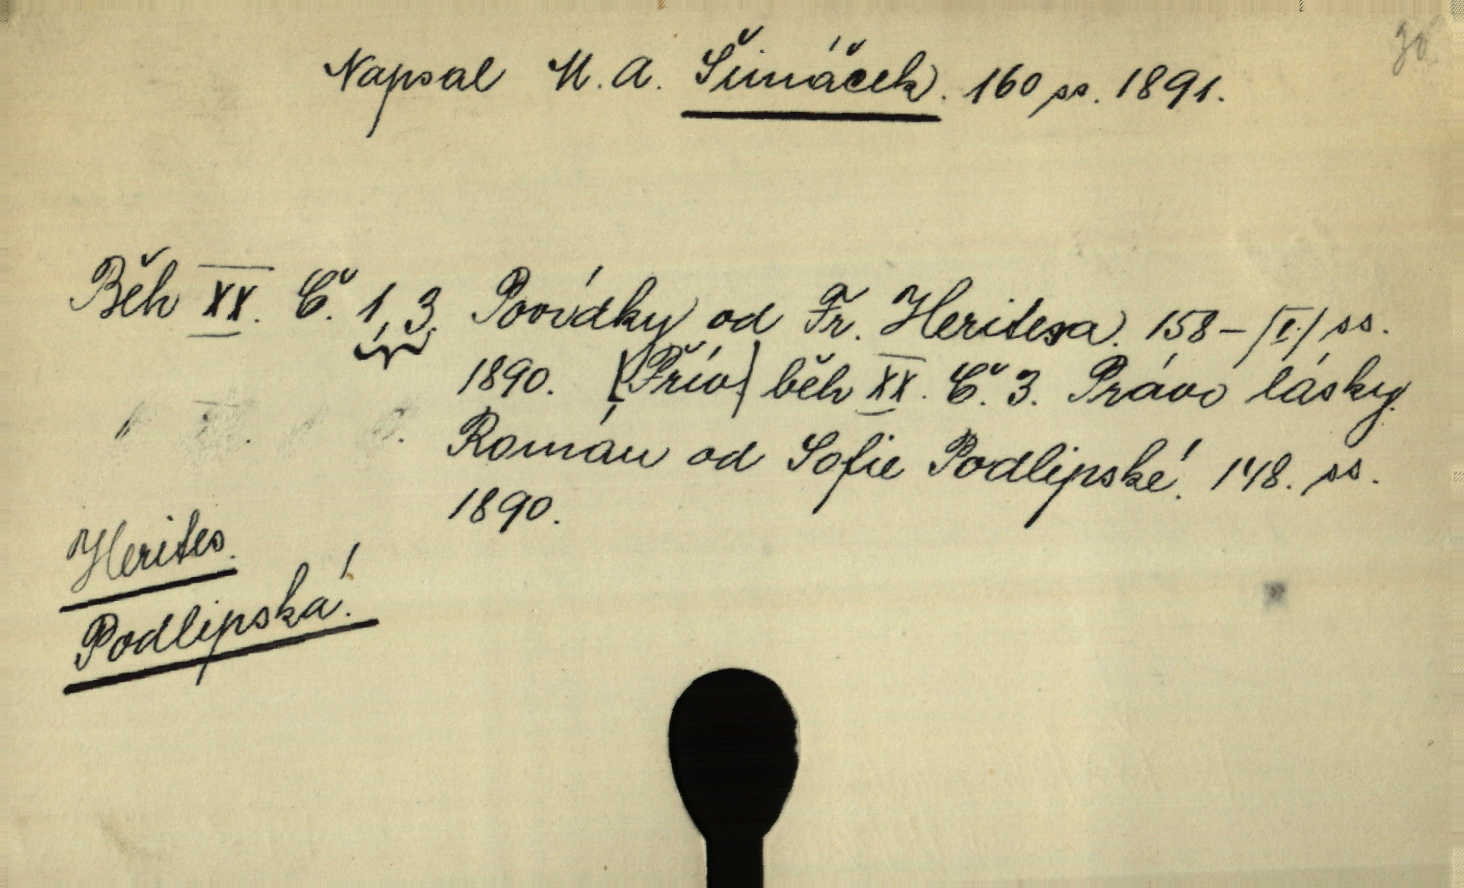 Napsal M. A. Šimáček. 160 ss. 1891.
Běh XX. Č. 1, 3. Povídky od Fr. Heritesa. 158 – /I./ ss.
1890. [Přív.] běh XX. Č. 3. Právo lásky.
Román od Sofie Podlipské. 148. ss.
1890.
Herites.
Podlipská.